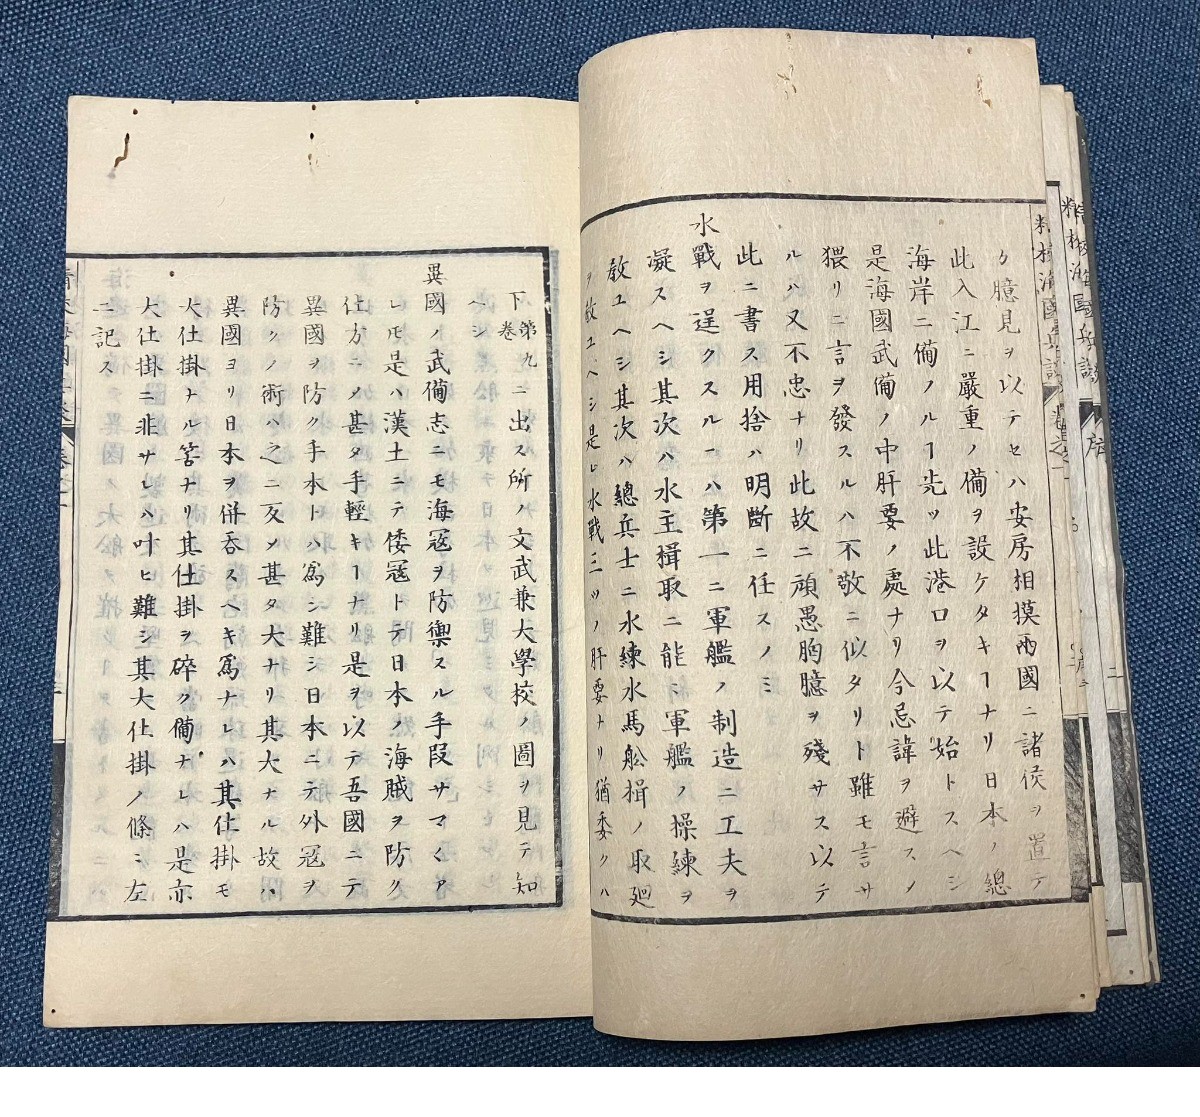 精校海國兵談
序
精校海國兵談 卷之一
ク臆見ヲ以テセハ安房相摸兩國ニ諸侯ヲ置テ
此入江ニ嚴重ノ備ヲ設ケタキヿナリ日本ノ總
海岸ニ備ノルヿ先ツ此港口ヲ以テ始トスヘシ
是海國武備ノ中肝要ノ處ナリ今忌諱ヲ避スメ
猥リニ言ヲ發スルハ不敬ニ似タリト雖モ言サ
ルハ又不忠ナリ此故ニ頑愚胸臆ヲ殘サス以テ
此ニ書ス用捨ハ明斷ニ任スノミ
水戰ヲ逞クスルヿハ第一ニ軍艦ノ制造ニ工夫ヲ
凝スヘシ其次ハ水主楫取ニ能軍艦ノ操練ヲ
敎ユヘシ其次ハ總兵士ニ水練水馬舩楫ノ取廻
ヲ敎ユヘシ是レ水戰三ツノ肝要ナリ猶委クハ
下第九卷ニ出ス所ノ文武兼大學校ノ圖ヲ見テ知
ヘシ
異國ノ武備志ニモ海冦ヲ防禦スル手段サマ〱ア
レ𪜈是ハ漢土ニテ倭冦トテ日本ノ海賊ヲ防ク
仕方ニメ甚タ手輕キヿナリ是ヲ以テ吾國ニテ
異國ヲ防ク手本トハ爲シ難シ日本ニテ外冦ヲ
防クノ術ハ之ニ反メ甚タ大ナリ其大ナル故ハ
異國ヨリ日本ヲ併呑スヘキ爲ナレハ其仕掛モ
大仕掛ナル筈ナリ其仕掛ヲ碎ク備ナレハ是亦
大仕掛ニ非サレハ叶ヒ難シ其大仕掛ノ條ミ左
ニ記ス